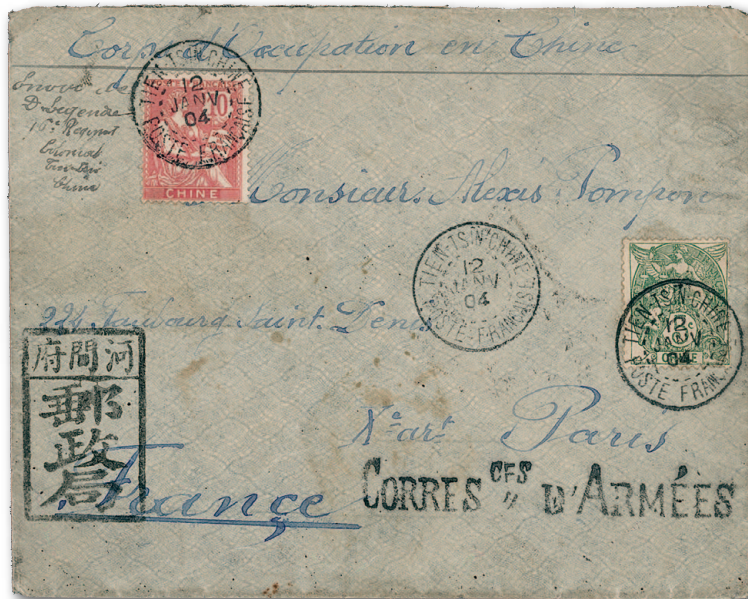 Corps d'Occupation en Chine
Envoi de
D Legendre
16e Régiment
Colonial
Chine
10
CHINE
TIEN-TSIN-CHINE
12
JANV
04
POSTE FRANÇAISE
Monsieur Alexis Pompon
TIEN-TSIN-CHINE
12
JANV
04
POSTE FRANÇAISE
5
CHINE
TIEN-TSIN-CHINE
12
JANV
04
POSTE FRANÇAISE
224 Faubourg Saint Denis
河間府
郵政局
Xe art Paris
France
CORRESCES D'ARMÉES